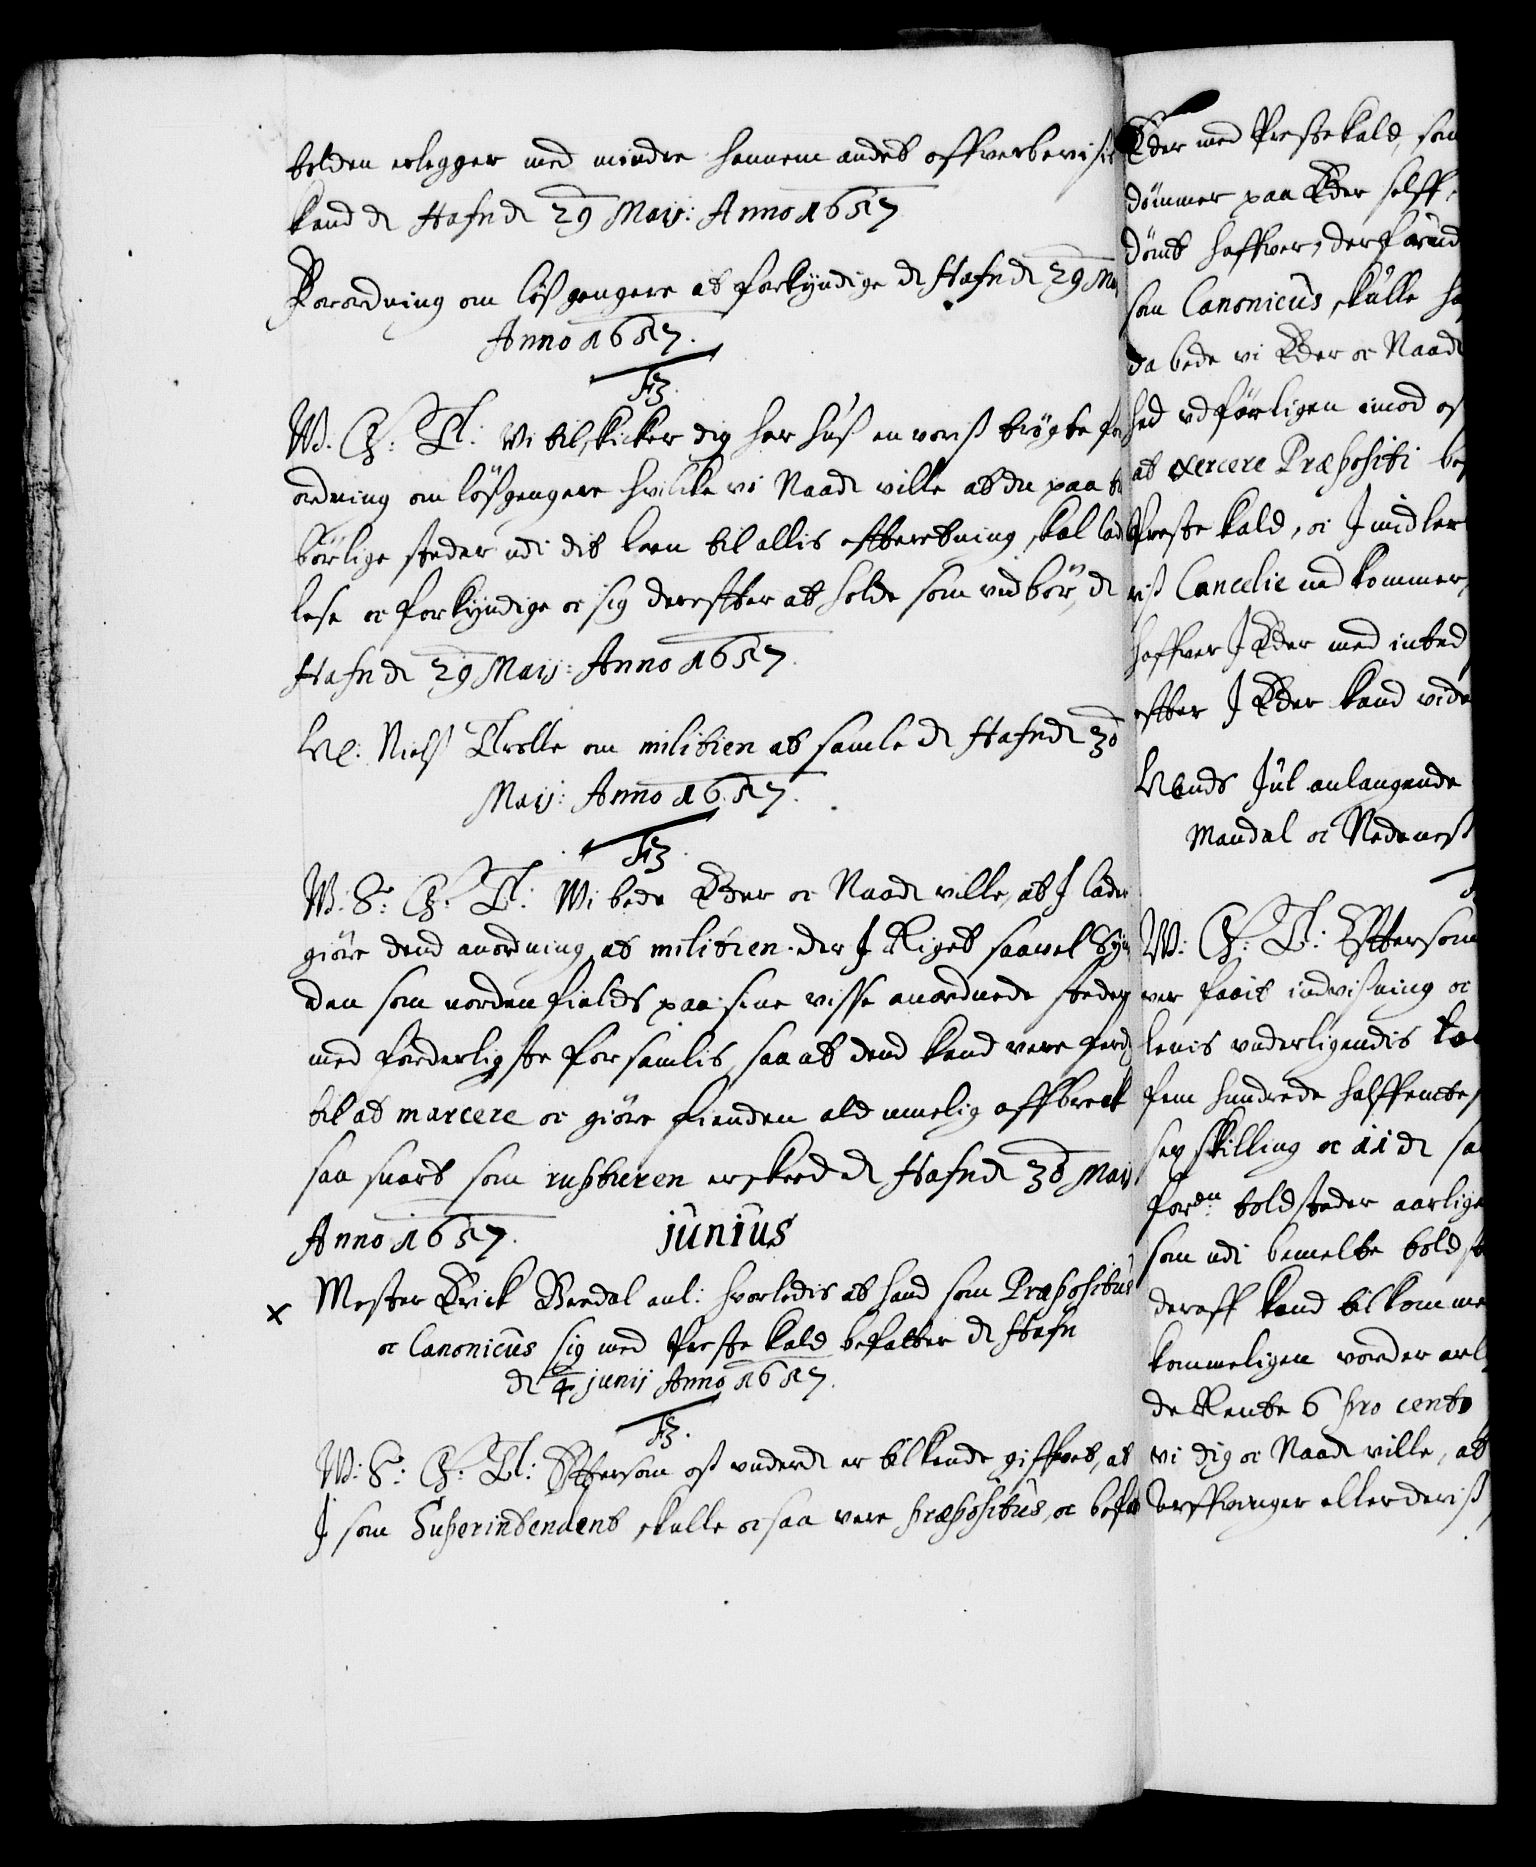 tolden erlegger med mindre hannem andet offverbevisis
kand d. Hafn d. 29 Maij: Anno 1657
Forordning om løsgengere at forkyndige d. Hafn d. 29 Ma
Anno 1657.
F3.
W. G: T: Vi tilskicker dig her hus en voris trøgte for
ordning om løsgengere hvilcke vi Naad. ville at du paa til
børlige steder udi dit leen til allis effterretning skal lad
lese oc forkyndige oc sig dereffter at holde som vedbør, d.
Hafn d. 29 Maij: Anno 1657.
Niels Trolle om militien at samle d. Hafn d. 30
Maij: Anno 1657.
F3.
W: S: G: T: Wi bede Eder oc Naad. ville, at I lader
giøre dend anordning at militien der I Riget saavel Syn
den som norden fields paa sine visse anordnede steder
med forderligste forsamlis, saa at dend kand vere ferd
til at marcere oc giøre fienden ald muelig affbreck
saa snart som rupturen er skeed d. Hafn d. 30 Maij
Anno 1657. junius
x Mester Erick Bredal anl: hvorledis at hand som Præpositus
oc Canonicus sig med Preste kald befatter d. Hafn
d. 4 junij Anno 1657.
F3.
W: S: G: T: Effтersom os underd. er tilkende giffvet, at
I som Superintendent skulle ocsaa vere præpositus, oc befat
Eder med Prestekald, som
dømmer paa Eder selff,
dømt haffver, der forud
som Canonicus skulle ha
da bede vi Eder oc Naad.
hed udførligen imod os
at exercere Præpositi be
Preste kald, oc Imidler
ris Cancelie ind kommer,
haffver I Eder med intet
effter I Eder kand vide
Jul anlangende
Mandal oc Nedenes
W: G: T: Effterson
ver faait indvisning oc
lenis underligendis to
fem hundrede halffemte
sex skilling oc 11 d. sa
for dn: toldsteder aarlige
som udi bemelte told st
deraff kand tilkomme
kommeligen vorder erl
de Rente 6 pro cento
vi dig oc Naad. ville, at
arffvinger eller deris